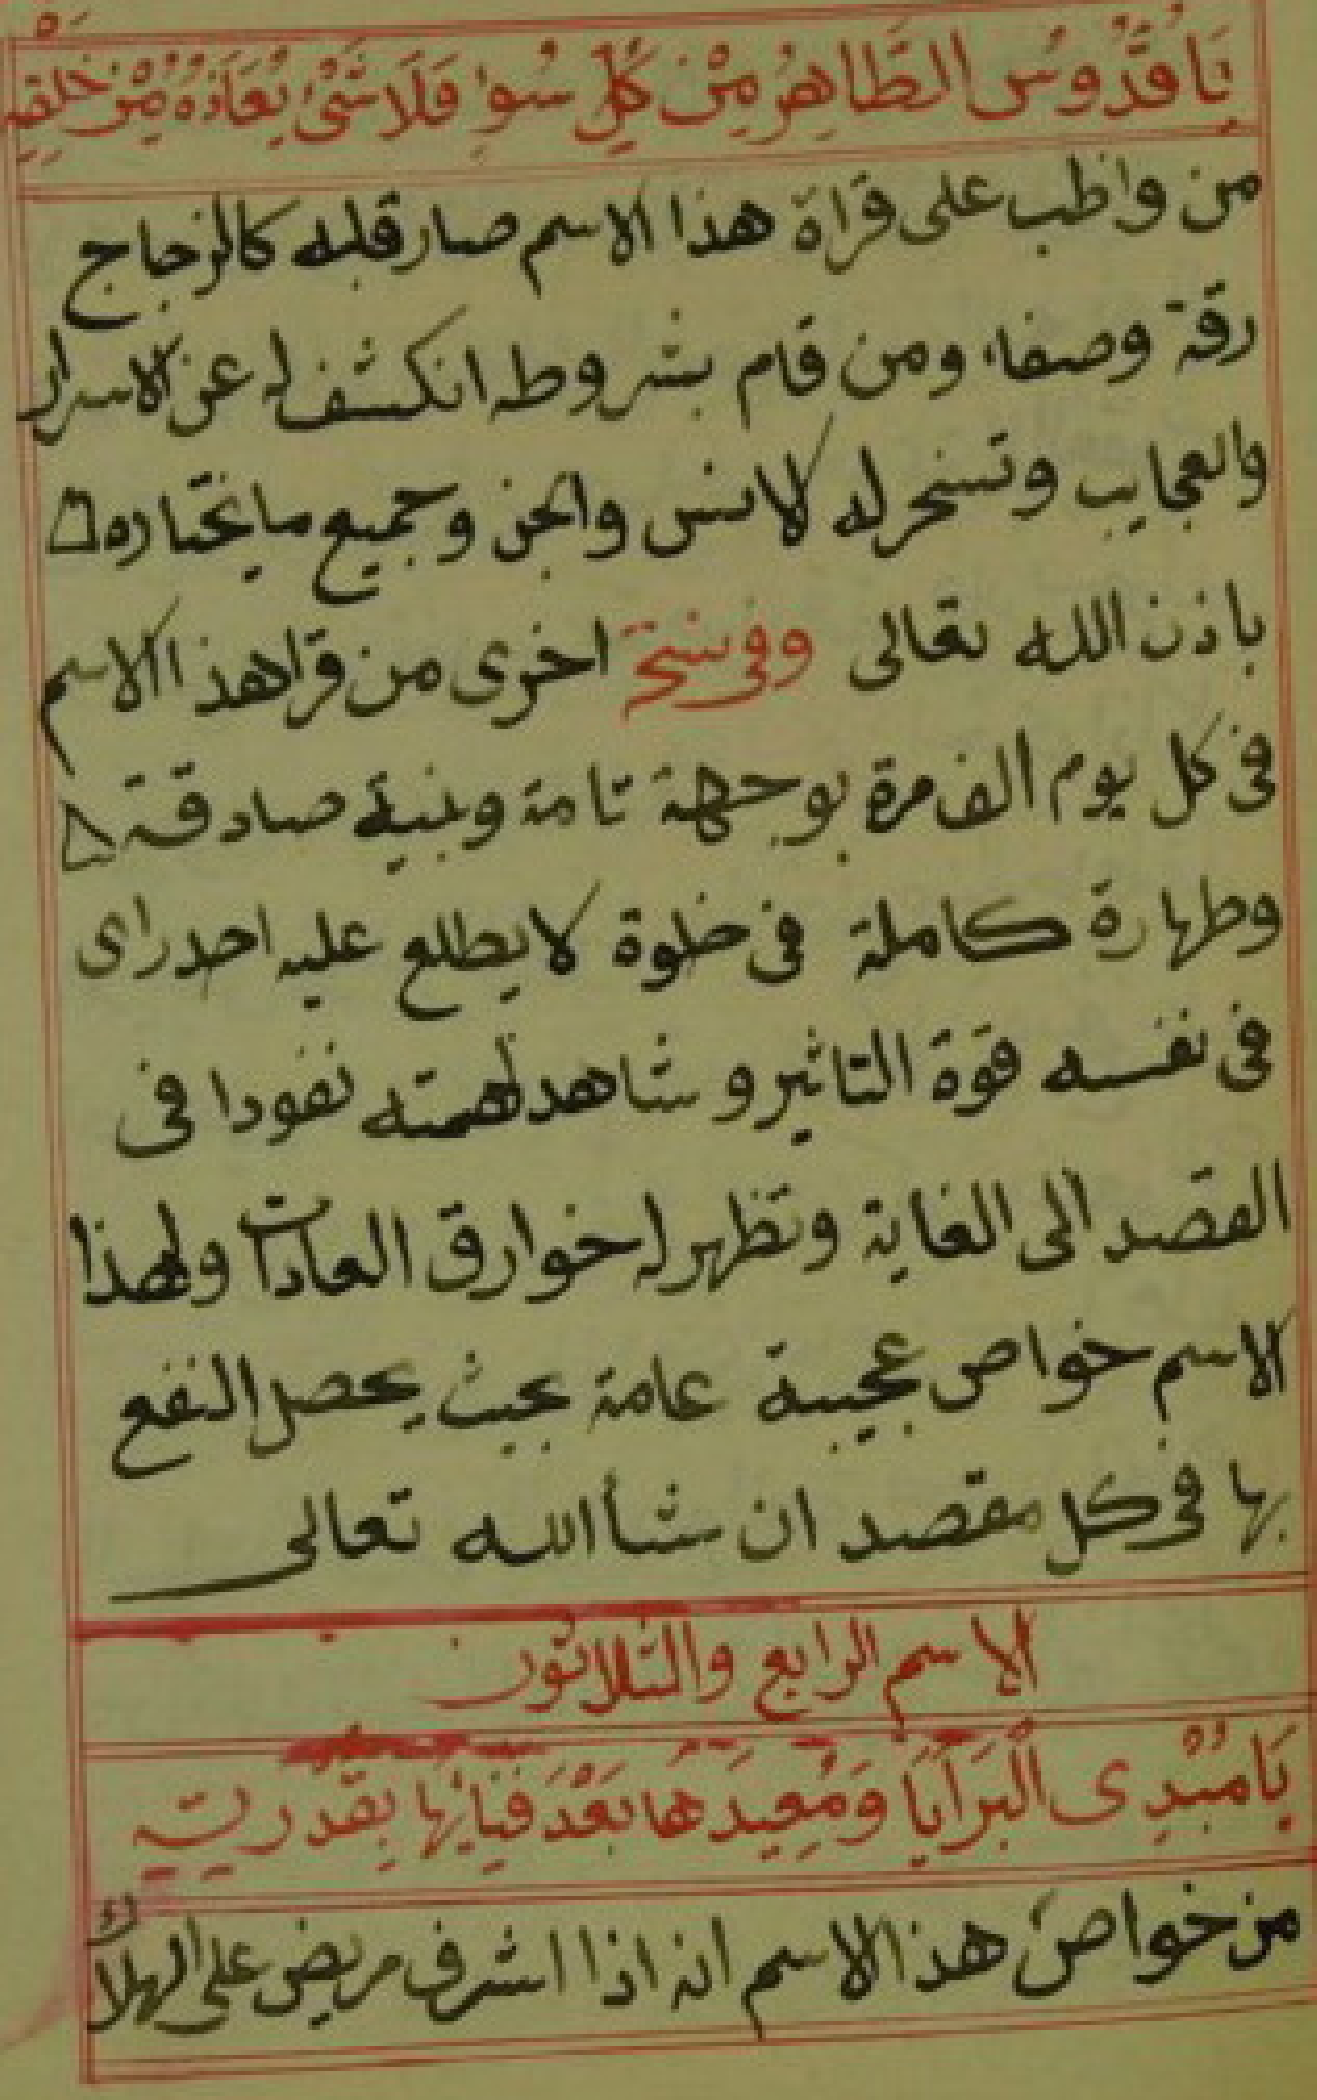 يَا قُدُّوسُ الطَّاهِرُ مِنْ كُلِّ سُوءٍ فَلَا شَىْءَ يُعَازُهُ مِنْ خَلْقِهِ
من واظب على قراة هذا الاسم صار قلبه كالزجاج
رقة وصفاء ومن قام بشروطه انكشف له عن الاسرار
والعجايب وتسخر له الانس والجن وجميع ما يختاره
باذن الله تعالى وفى نسخة اخرى من قرا هذا الاسم
فى كل يوم الف مرة بوجهة تامة وبنية صادقة
وطهارة كاملة فى خلوة لا يطلع عليه احد راى
فى نفسه قوة التاثير وشاهد لهمته نفودا فى
القصد الى الغاية وتظهر له خوارق العادات ولهذا
الاسم خواص عجيبة عامة بحيث يحصل النفع
بها فى كل مقصد ان شأ الله تعالى
الاسم الرابع والثلاثون
يَا مُبْدِى الْبَرَايَا وَمُعِيدَهَا بَعْدَ فَنَايِهَا بِقُدْرَتِهِ
من خواص هذا الاسم انه اذا اشرف مريض على الهلاك